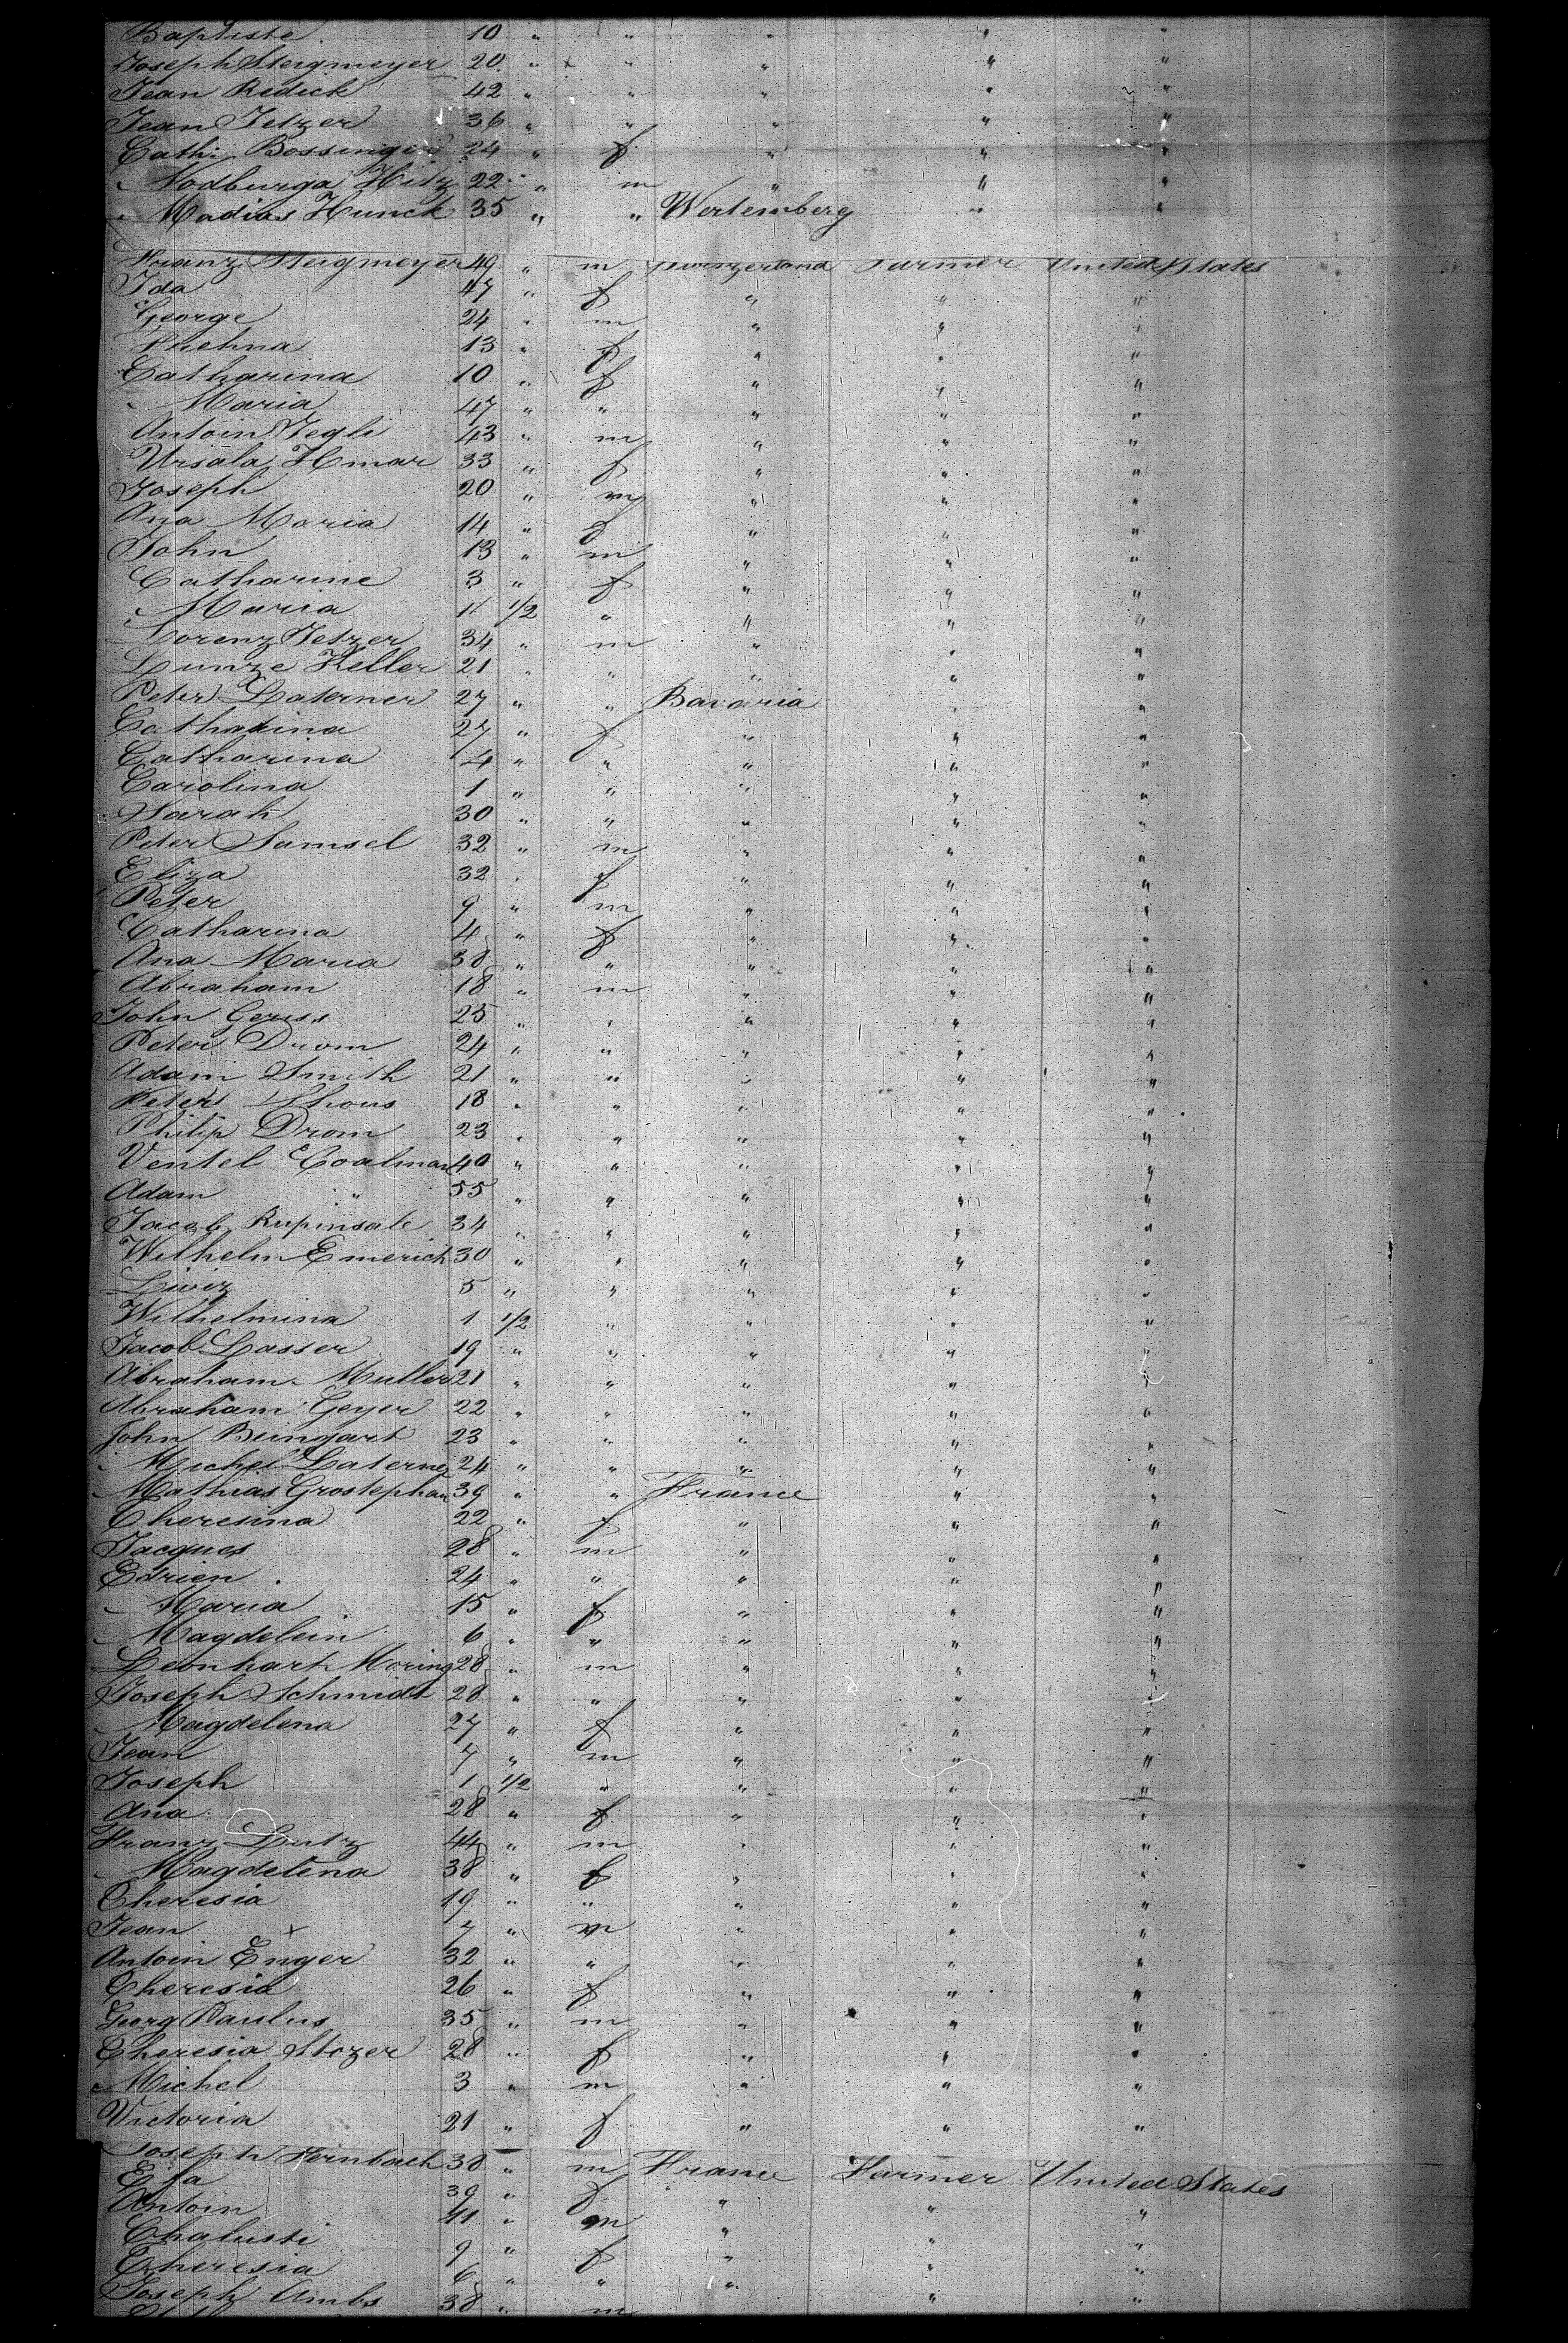 Baptiste 10 " " " " "
Joseph Stegmeyer 20 " " " " "
Jean Redick 42 " " " " "
Jean Jetzer 36 " " " " "
Cath. Bossinger 24 " f " " "
Nodburga Hitz 22 " m " " "
Madias Hunck 35 " " Wertemberg " "
Franz Stegmeyer 49 " m Switzerland Farmer United States
Ida 47 " f " " "
George 24 " m " " "
13 " f " " "
Catharina 10 " f " " "
Maria 47 " " " " "
Antoin Jegli 43 " m " " "
Ursala Hmar 33 " f " " "
Joseph 20 " m " " "
Ana Maria 14 " f " " "
John 13 " m " " "
Catharine 3 " f " " "
Maria 11 1/2 " " " "
Lorenz Jetzer 34 " m " " "
Keller 21 " " " " "
Peter Laterner 27 " " Bavaria " "
Catharina 27 " f " " "
Catharina 4 " " " " "
Carolina 1 " " " " "
Sarah 30 " " " " "
Peter Samsel 32 " m " " "
Eliza 32 " f " " "
Peter 9 " m " " "
Catharina 4 " f " " "
Ana Maria 38 " " " " "
Abraham 18 " m " " "
John Geriss 25 " " " " "
Peter Drom 24 " " " " "
Adam Smith 21 " " " " "
Peter 18 " " " " "
Philip Drom 23 " " " " "
Ventel Coalman 40 " " " " "
Adam " 55 " " " " "
Jacob Rupinsale 34 " " " " "
Wilhelm Emerich 30 " " " " "
5 " " " " "
Wilhelmina 1 1/2 " " " "
Jacob Lasser 19 " " " " "
Abraham Muller 21 " " " " "
Abraham Geyer 22 " " " " "
John Beingart 23 " " " " "
Michel Laterner 24 " " " " "
Mathias Grostephan 39 " " France " "
Theresina 22 " f " " "
Jacques 28 " m " " "
Edrien 24 " " " " "
Maria 15 " f " " "
Magdelein 6 " " " " "
Leonhart Moring 28 " m " " "
Joseph Schmidt 28 " " " " "
Magdelena 27 " f " " "
Jean 7 " m " " "
Joseph 1 1/2 " " " "
Ana 28 " f " " "
Franz Lutz 44 " m " " "
Magdelena 38 " f " " "
Theresia 19 " " " " "
Jean x 7 " m " " "
Antoin Enger 32 " " " " "
Theresia 26 " f " " "
Georg Paulus 35 " m " " "
Theresia Stozer 28 " f " " "
Michel 3 " m " " "
Victoria 21 " f " " "
Joseph Hernbach 38 " m France Farmer United States
Efa 39 " f " " "
Antoin 11 " m " " "
Chalusti 9 " f " " "
Theresia 6 " " " " "
Joseph Umbs 38 " m " " "